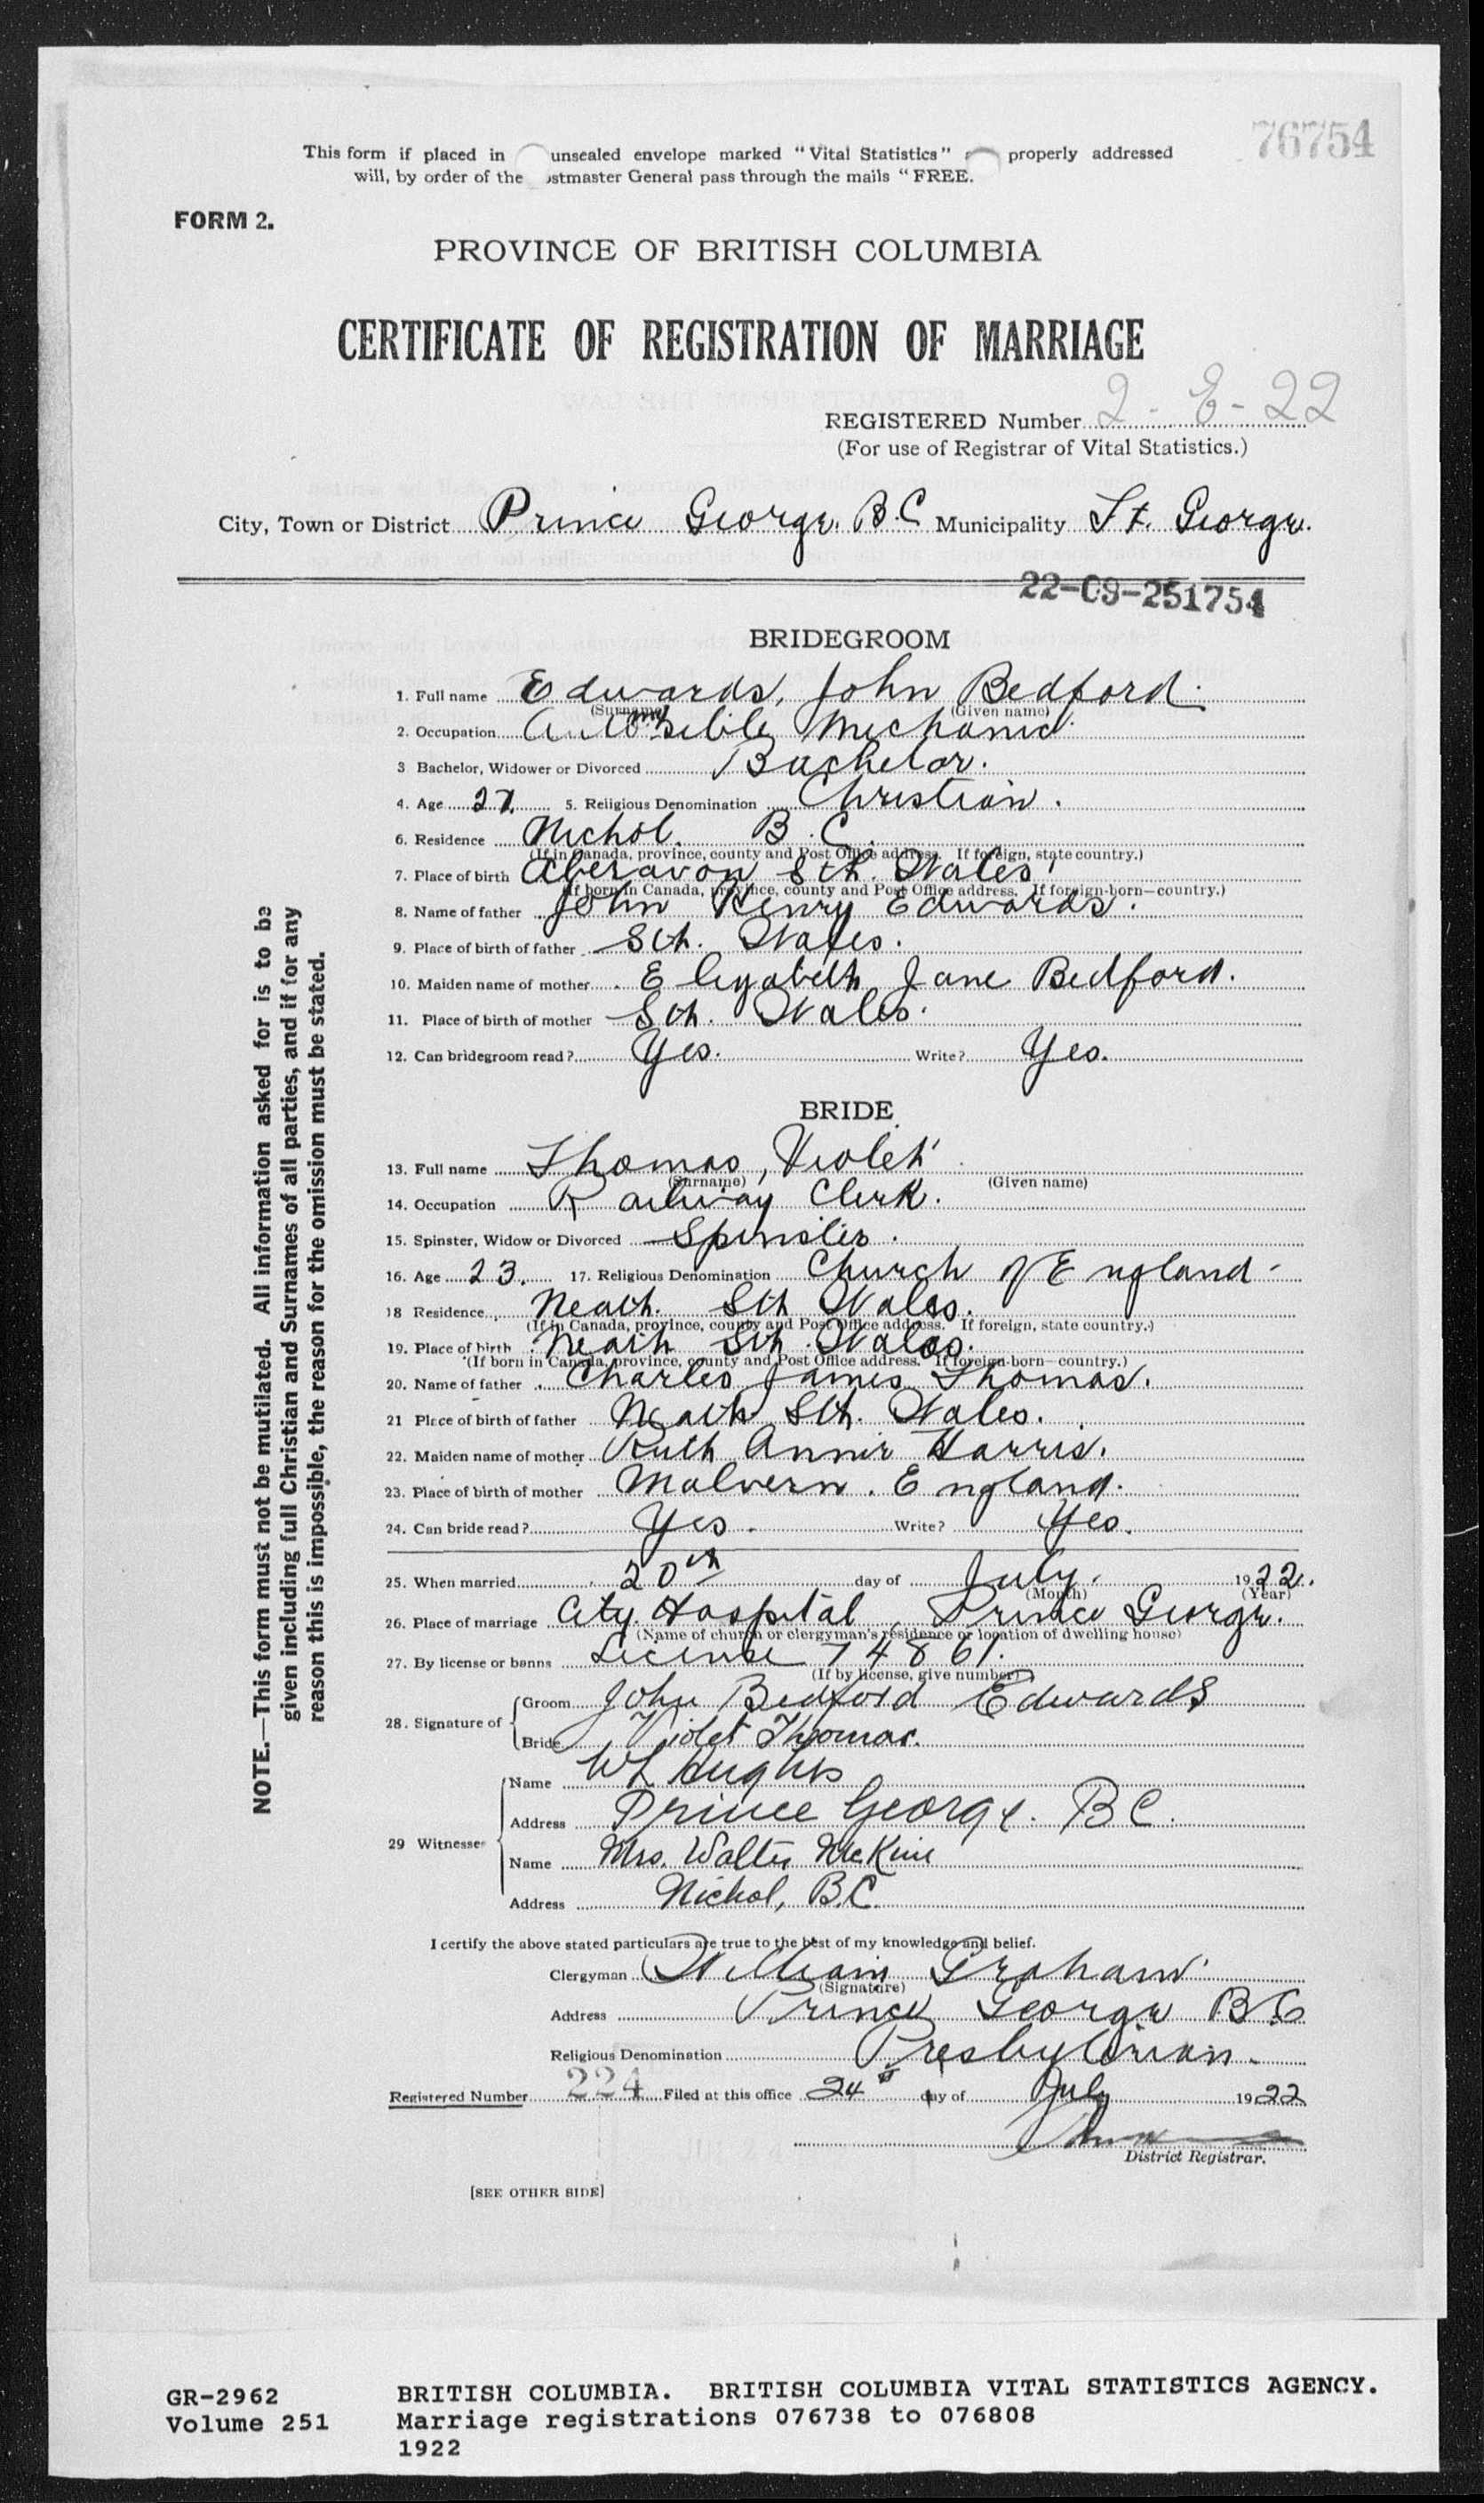 76754
This form if placed in unsealed envelope marked "Vital Statistics" properly addressed
will, by order of the ostmaster General pass through the mails "FREE.
FORM 2.
PROVINCE OF BRITISH COLUMBIA
CERTIFICATE OF REGISTRATION OF MARRIAGE
REGISTERED Number 2-E-22
(For use of Registrar of Vital Statistics.)
City, Town or District Prince George. B.C Municipality Ft. George.
22-09-251754
BRIDEGROOM
1. Full name Edwards, John Bedford.
(Surname) (Given name)
2. Occupation Automobile Mechanic.
3 Bachelor, Widower or Divorced Bachelor.
4. Age 27. 5. Religious Denomination Christian.
6. Residence Nichol. B.C.
(If in Canada, province, county and Post Office address. If foreign, state country.)
7. Place of birth Aberavon Sth. Wales.
(If born in Canada, province, county and Post Office address. If foreign-born—country.)
8. Name of father John Henry Edwards.
9. Place of birth of father Sth. Wales.
10. Maiden name of mother Elizabeth Jane Bedford.
11. Place of birth of mother Sth. Wales.
12. Can bridegroom read? Yes. Write? Yes.
BRIDE
13. Full name Thomas, Violet
(Surname) (Given name)
14. Occupation Railway Clerk.
15. Spinster, Widow or Divorced Spinster.
16. Age 23. 17. Religious Denomination Church of England
18 Residence Neath. Sth Wales.
(If in Canada, province, county and Post Office address. If foreign, state country.)
19. Place of birth Neath Sth. Wales.
(If born in Canada, province, county and Post Office address. If foreign-born—country.)
20. Name of father Charles James Thomas.
21 Place of birth of father Neath Sth. Wales.
22. Maiden name of mother Ruth Annie Harris.
23. Place of birth of mother Malvern. England.
24. Can bride read? Yes. Write? Yes.
25. When married 20th day of July. 1922.
(Month) (Year)
26. Place of marriage City Hospital, Prince George.
(Name of church or clergyman's residence or location of dwelling house)
27. By license or banns License 74861.
(If by license, give number)
28. Signature of Groom John Bedford Edwards
Bride Violet Thomas.
29 Witnesses Name WL Hughes
Address Prince George. BC.
Name Mrs. Walter McKine
Address Nichol, B.C.
I certify the above stated particulars are true to the best of my knowledge and belief.
Clergyman William Graham
(Signature)
Address Prince George B.C
Religious Denomination Presbyterian.
Registered Number 224 Filed at this office 24th day of July 1922
District Registrar.
[SEE OTHER SIDE]
NOTE.—This form must not be mutilated. All information asked for is to be
given including full Christian and Surnames of all parties, and if for any
reason this is impossible, the reason for the omission must be stated.
GR-2962 BRITISH COLUMBIA. BRITISH COLUMBIA VITAL STATISTICS AGENCY.
Volume 251 Marriage registrations 076738 to 076808
1922